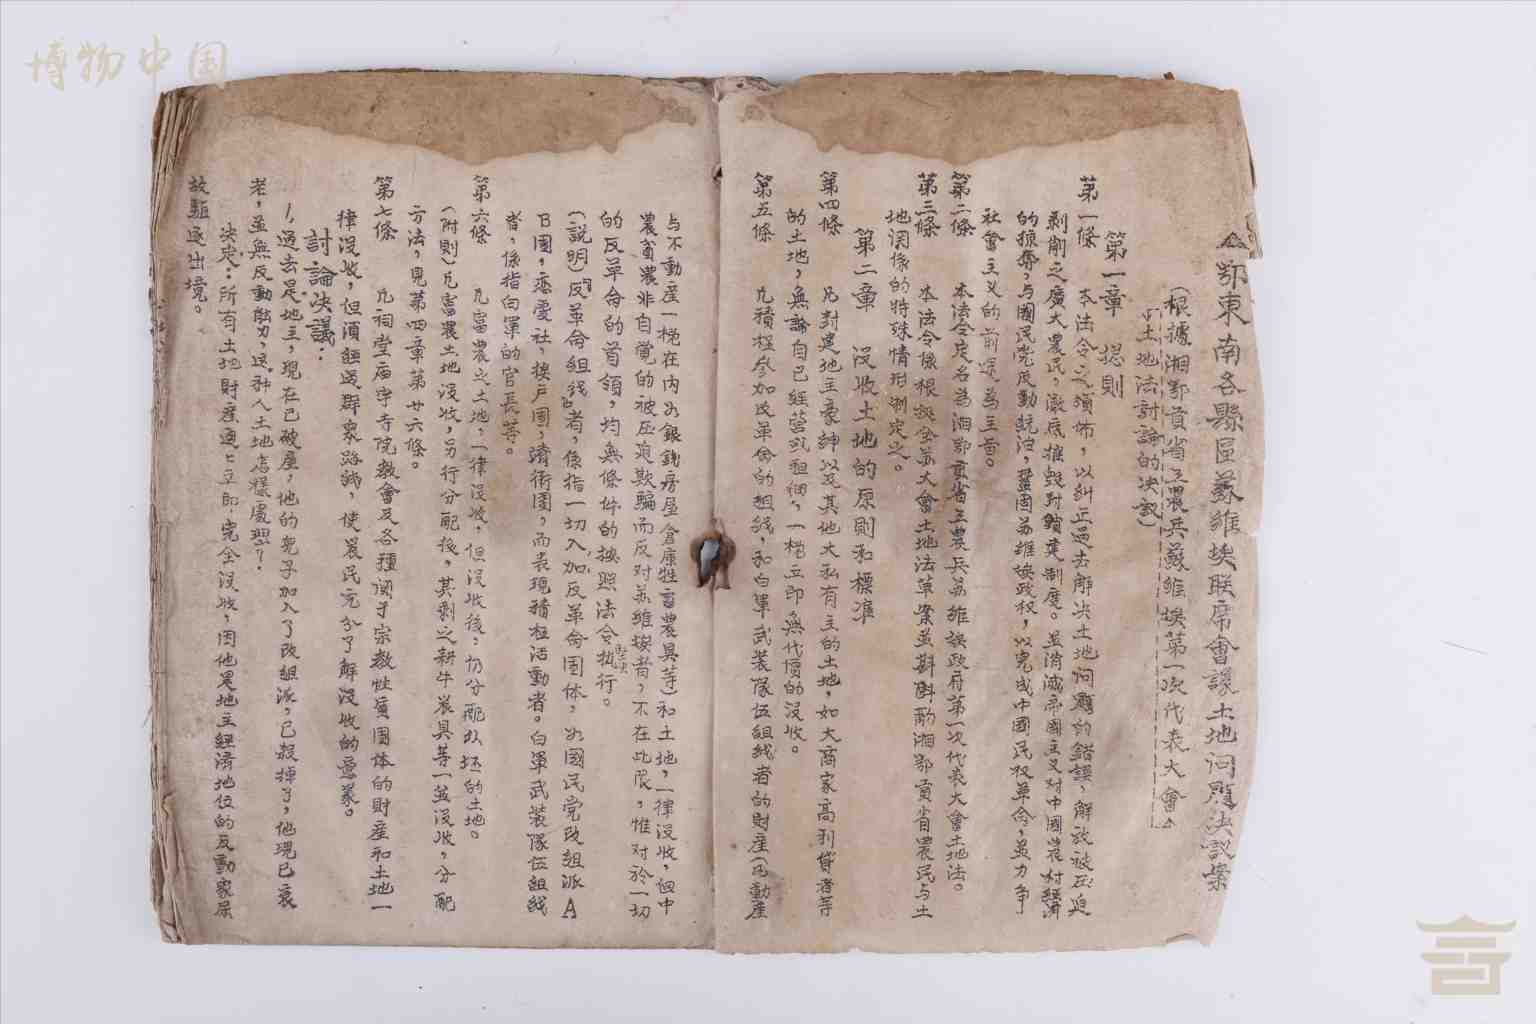 博物中国
鄂東南各縣區蘇維埃联席會議土地问题決議案
(根據湘鄂贛省工農兵蘇維埃第一次代表大會
土地法討論的決議)
第一章 總則
第一條 本法令之頒佈，以糾正過去解决土地问題的錯誤，解放被压迫
剥削之廣大農民，澈底摧毀封鎖建制度。並消滅帝國主义对中國農村經濟
的掠奪，与國民党反動統治，鞏固苏维埃政权，以完成中國民权革命，並力争
社會主义的前途為主旨。
第二條 本法令定名為湘鄂贛省工農兵苏維埃政府第一次代表大會土地法。
第三條 本法令係根据全苏大會土地法草案並斟酌湘鄂贛省農民与土
地関係的特殊情形制定之。
第二章 没收土地的原則和標準
第四條 凡封建地主豪紳以及其他大私有主的土地，如大商家高利貸者等
的土地，無論自己經营或租佃，一概立即無代價的没收。
第五條 凡積極參加反革命的組織，和白軍武装隊伍組織者的財產(凡動產
与不動產一概在内如銀錢房屋倉庫牲畜農具等)和土地，一律没收，但中
農貧農非自覚的被压迫欺騙而反对苏維埃者，不在此限，惟对於一切
的反革命的首領，均無條件的按照法令执行。
(説明)反革命組織者，係指一切入加反革命团体，如國民党改組派A
B團，恋愛社，挨戶团，清衛團，而表現積極活動者。白軍武裝隊伍組織
者，係指白軍的官長等。
第六條 凡富農之土地，一律没收，但没收後。仍分配以坯的土地。
(附則)凡富農土地没收，另行分配後，其剩之耕牛農具等一並没收，分配
方法，見第四章第廿六條。
第七條 凡祠堂庙宇寺院教會及各種関于宗教性質团体的財產和土地一
律没收，但須經過群衆路線，使農民充分了解没收的意義。
討論決議：
1,過去是地主，現在已破產，他的兒子加入了改組派，已殺掉了，他現已衰
老，並無反動能力，这种人土地怎樣處理？
決定：所有土地財產通七立即完全没收，因他是地主經濟地位的反動家屬
故驅逐出境。